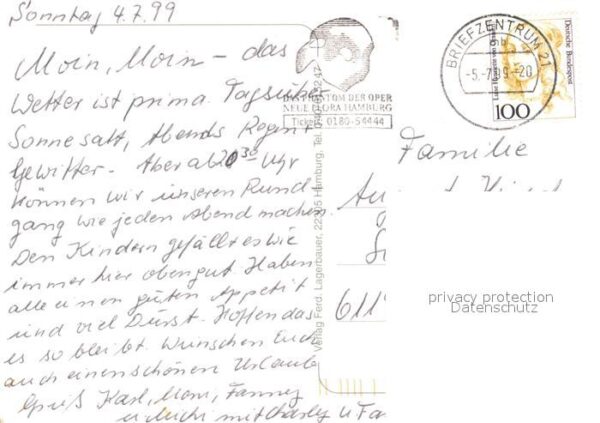 Sonntag 4.7.99
Moin, Moin - das
Wetter ist prima. Tagsüber
Sonne satt, Abends Regen +
Gewitter. Aber ab 20 30 Uhr
können wir unseren Rund
gang wie jeden Abend machen
Den Kindern gefällt es wie
immer hier oben gut. Haben
alle einen guten Appetit
und viel Durst. Hoffen das
es so bleibt. Wünschen Euch
auch einen schönen Urlaub
Gruß Karl, Mom, Fanney
mit Charley u Fa
Verlag Ferd. Lagerbauer, 22395 Hamburg, Tel.
DAS PHANTOM DER OPER
NEUE FLORA HAMBURG
Tickets 0180-54444
BRIEFZENTRUM 21
9b
-5.-7.99-20
Deutsche Bundespost
100
Familie
611
privacy protection
Datenschutz